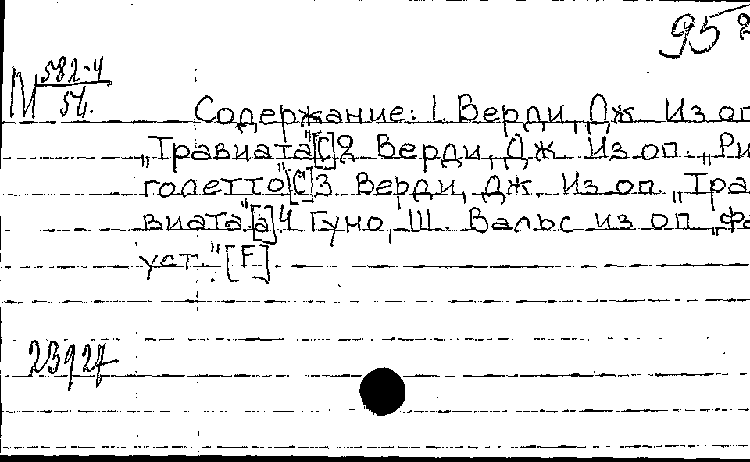 95
М 582-4
54.
Содержание: 1. Верди, Дж. Из оп.
„Травиата" [C] 2 Верди, Дж. Из оп. „Ри
голетто" [C] 3 Верди, Дж. Из оп. „Тра
виата" [a] 4 Гуно, Ш. Вальс из оп. „Фа
уст." [F]